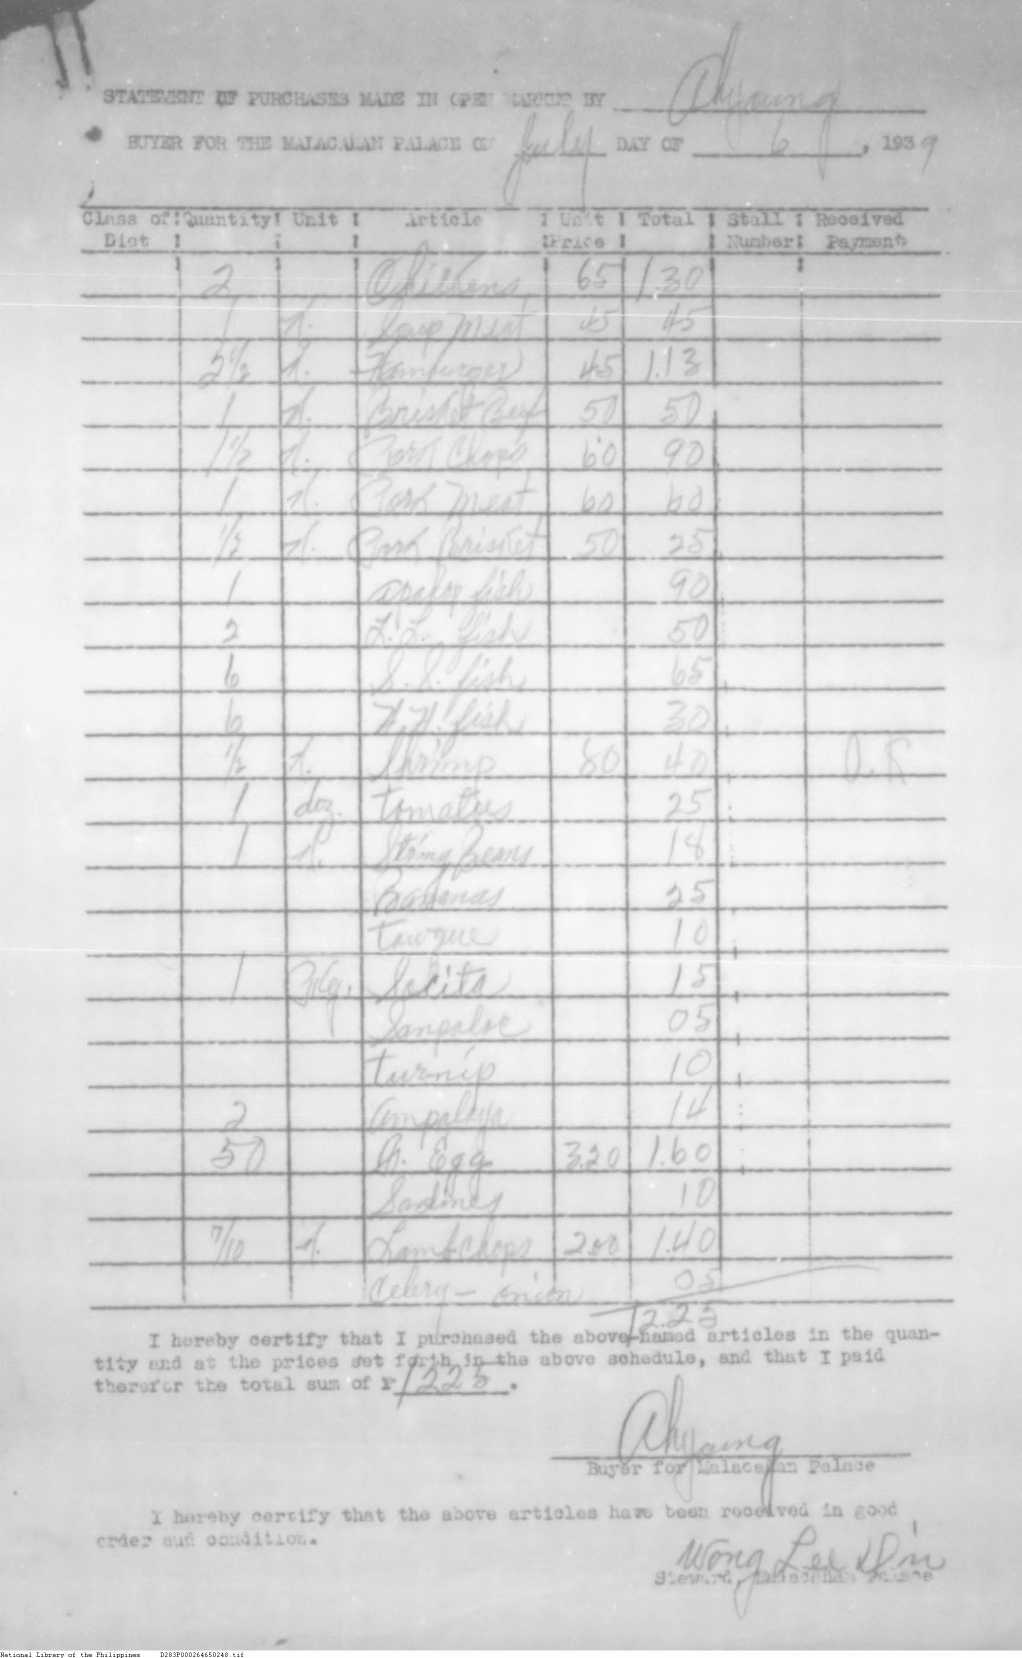 STATEMENT OF PURCHASES MADE IN OPEN MARKET BY Ahyoung
BUYER FOR THE MALACAÑAN PALACE ON July DAY OF 6, 1939
Class of Diet Quantity Unit Article Unit Price Total Stall Number Received Payment
2 Chickens 65 1.30
1 k. Soup Meat 45 45
2 1/2 k. Hamburger 45 1.13
1 k. Brisket Beef 50 50
1 1/2 k. Pork Chops 60 90
1 k. Pork Meat 60 60
1/2 k. Pork Brisket 50 25
1 apahap fish 90
2 L. L. fish 50
6 S. S. fish 65
6 H. H. fish 30
1/2 k. Shrimp 80 40 O.K
1 doz. tomatoes 25
1 k. String Beans 18
Bananas 25
towgue 10
1 Pkg. Sokita 15
Sampaloc 05
turnip 10
2 ampalaya 14
50 Egg 3.20 1.60
10
7/10 k. Lamb chops 2.00 1.40
Celery - onion 05
12.25
I hereby certify that I purchased the above-named articles in the quan-
tity and at the prices set forth in the above schedule, and that I paid
therefor the total sum of ₱ 12.25.
Ahyoung
Buyer for Malacañan Palace
I hereby certify that the above articles have been received in good
order and condition.
Wong Lee
Steward, Malacañan Palace
National Library of the Philippines D283P000264650248.tif